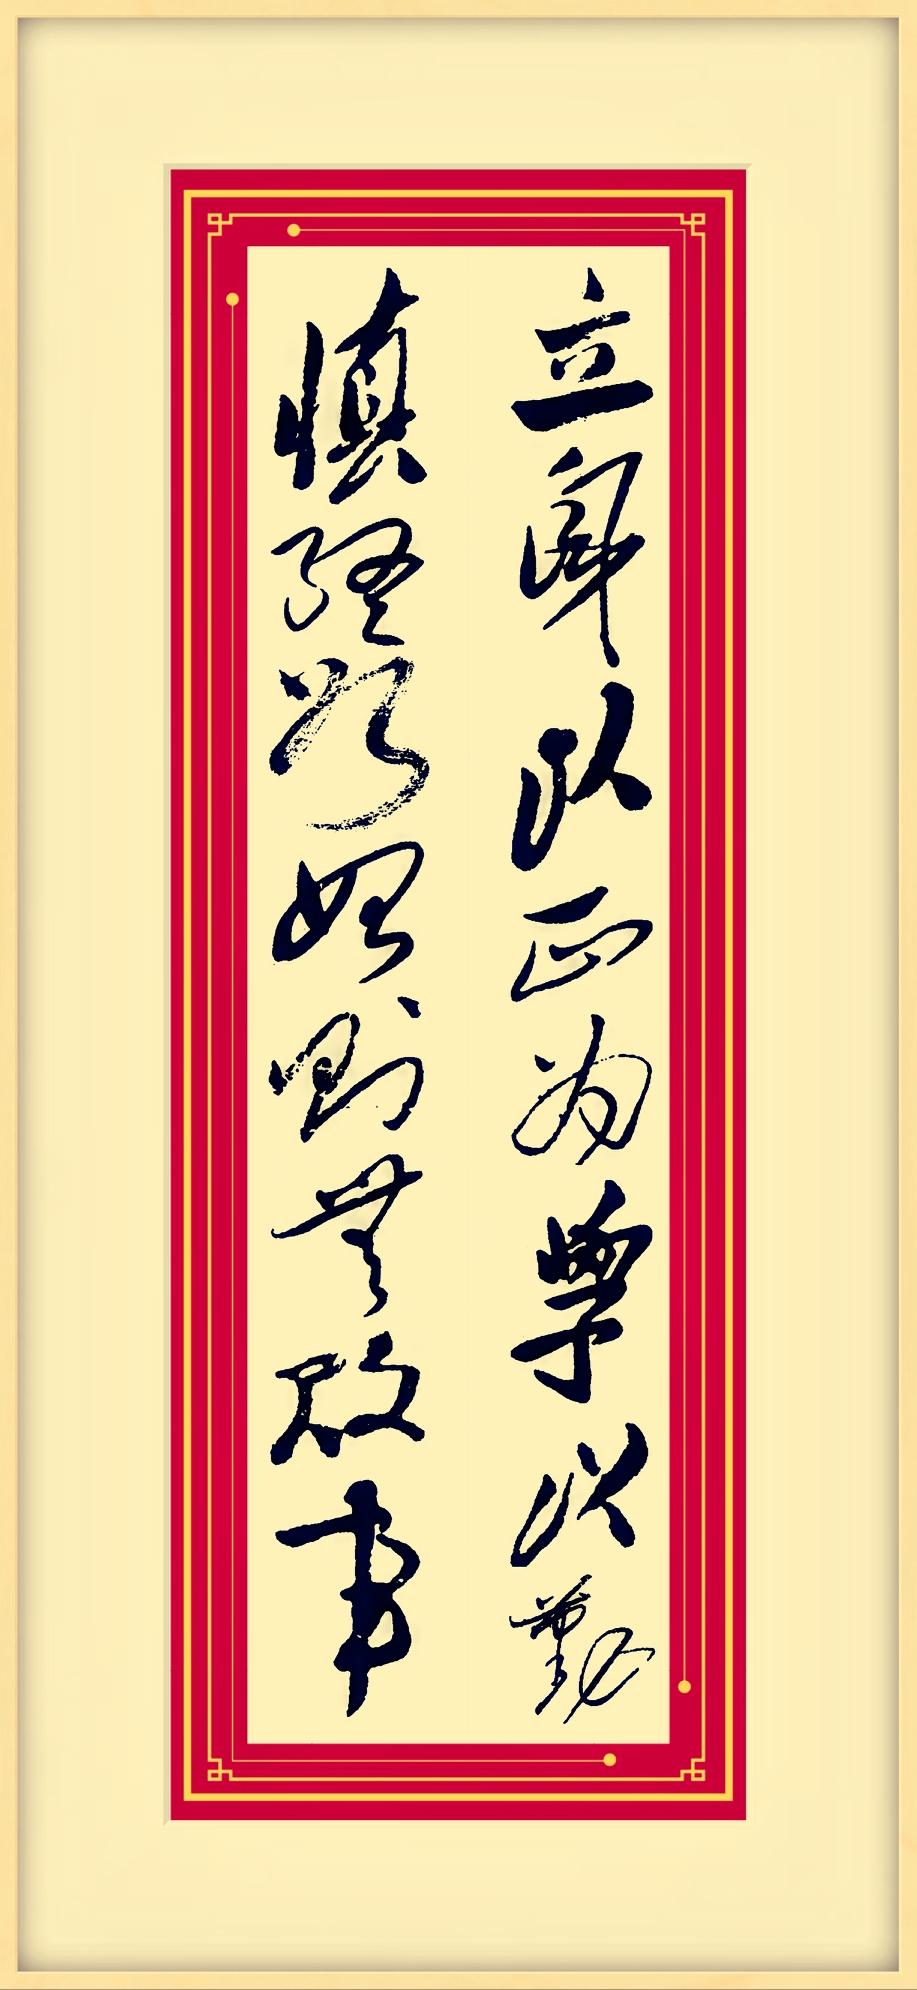 立身以正为学以勤
慎终如始则无败事